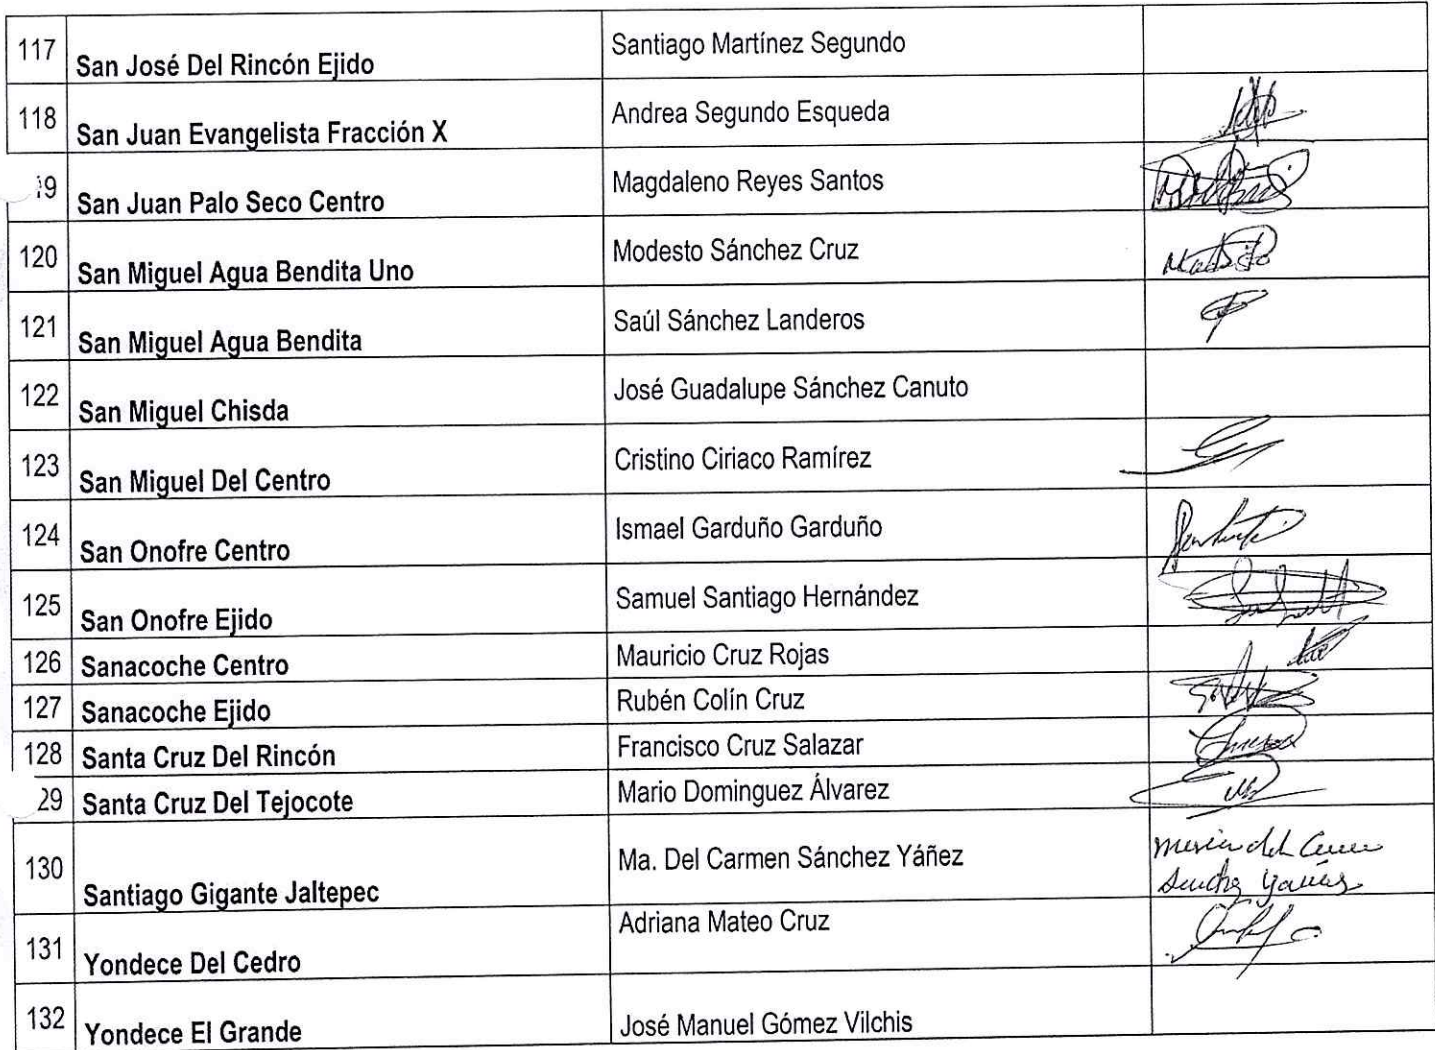 117 San José Del Rincón Ejido Santiago Martínez Segundo
118 San Juan Evangelista Fracción X Andrea Segundo Esqueda
9 San Juan Palo Seco Centro Magdaleno Reyes Santos
120 San Miguel Agua Bendita Uno Modesto Sánchez Cruz
121 San Miguel Agua Bendita Saúl Sánchez Landeros
122 San Miguel Chisda José Guadalupe Sánchez Canuto
123 San Miguel Del Centro Cristino Ciriaco Ramírez
124 San Onofre Centro Ismael Garduño Garduño
125 San Onofre Ejido Samuel Santiago Hernández
126 Sanacoche Centro Mauricio Cruz Rojas
127 Sanacoche Ejido Rubén Colín Cruz
128 Santa Cruz Del Rincón Francisco Cruz Salazar
29 Santa Cruz Del Tejocote Mario Dominguez Álvarez
130 Santiago Gigante Jaltepec Ma. Del Carmen Sánchez Yáñez
131 Yondece Del Cedro Adriana Mateo Cruz
132 Yondece El Grande José Manuel Gómez Vilchis